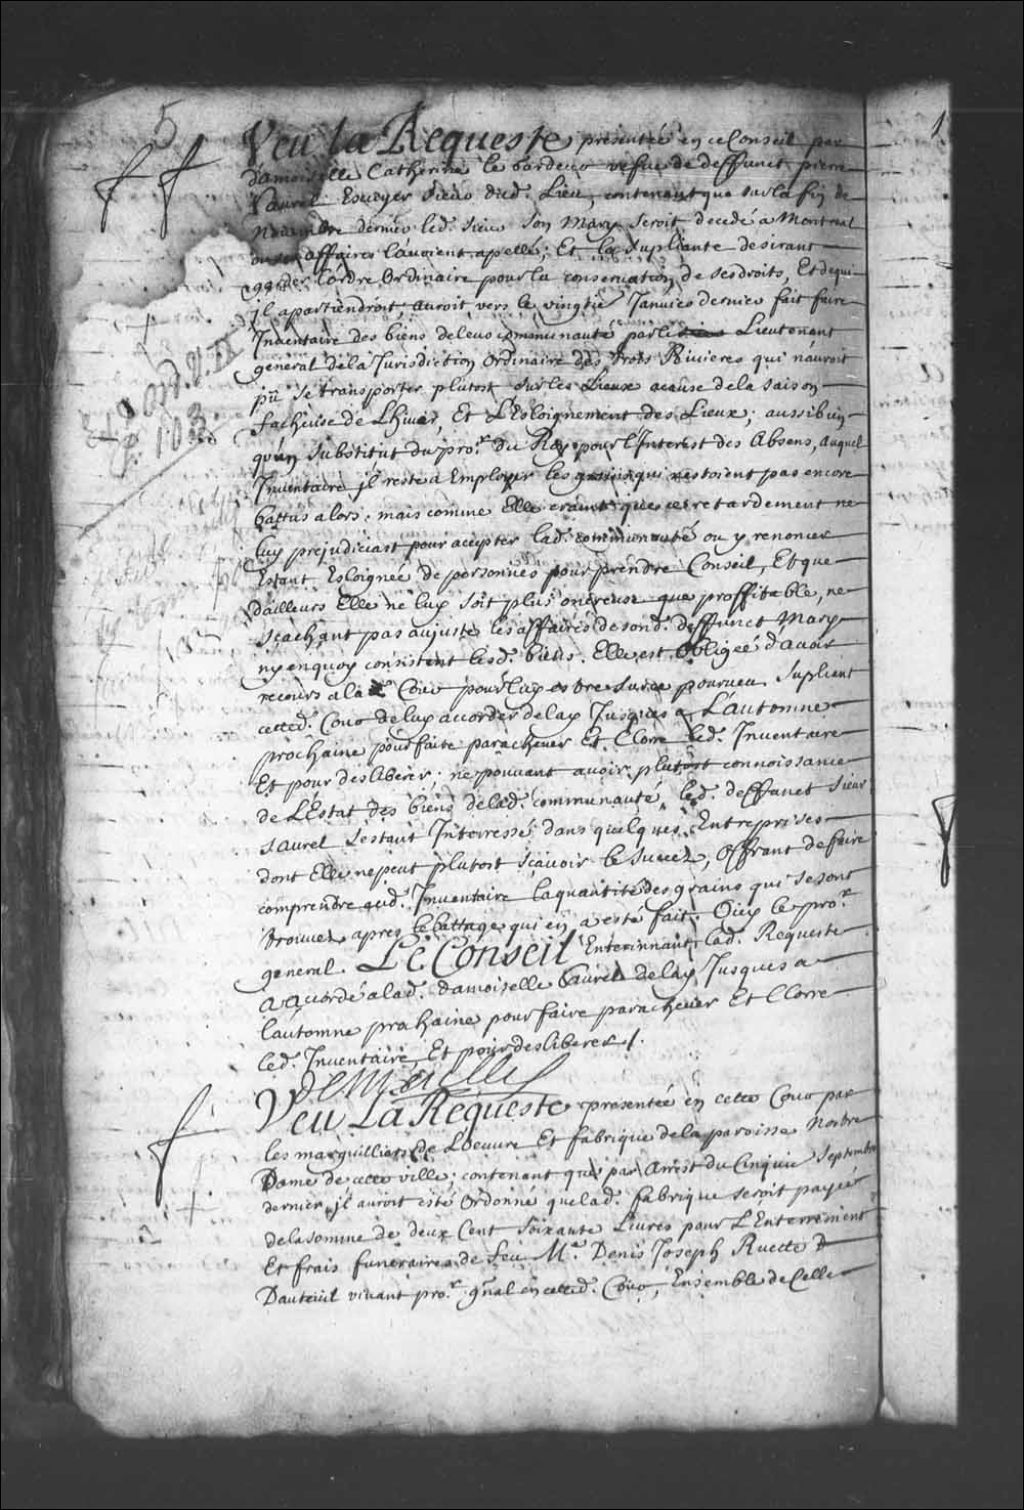 5
Veu la Requeste presentée en ce Conseil par
damoiselle Catherine le Gardeur vefue de deffunct pierre
Saurel Escuyer Sieur dud. Lieu, contenant que sur la fin de
Nouembre dernier led. Sieur son Mary seroit decedé a Montreal
ou ses affaires l'auoient apellé; Et la supliante desirant
garder l'ordre Ordinaire pour la conseruation de ses droits, Et de qui
il apartiendroit, auroit vers le vingtie Januier dernier fait faire
Inuentaire des biens de leur communauté par le Lieutenant
general de la Jurisdiction Ordinaire des trois Riuieres qui n'auroit
pû se transporter plutost sur les Lieux acause de la saison
facheuse de L'hiuer, Et L'Esloignement des Lieux; aussi bien
qu'un substitut du pror. Du Roy pour l'Interest des Absens, auquel
Inuentaire il reste a Employer les grains qui n'estoient pas encore
battus alors, mais comme Elle craint que ce retardement ne
luy prejudiciast pour accepter lad. communauté ou y renoncer
Estant Esloignée de personnes pour prendre Conseil, Et que
dailleurs Elle ne luy soit plus onereuse que proffitable, ne
scachant pas au juste les affaires de sond. deffunct Mary
ny en quoy consistent lesd. biens. Elle est Obligée d'auoir
recours a la Cour pour luy estre sur ce pourueu. Supliant
cetted. Cour de luy accorder delay Jusques a L'automne
prochaine pour faire paracheuer Et Clorre led. Inuentaire
Et pour desliberer; ne pouuant auoir plutost connoissance
de L'Estat des biens de lad. communauté, led. deffunct Sieur
Saurel s'estant Interressé dans quelques Entreprises
dont Elle ne peut plutost scauoir le succez, Offrant de faire
comprendre aud. Inuentaire la quantité des grains qui se sont
trouuez apres le battage qui en a esté fait. Ouy le pror.
general. Le Conseil Enterinnant lad. Requeste
a accordé a lad. damoiselle Saurel delay Jusques a
l'automne prochaine pour faire paracheuer Et Clorre
led. Inuentaire, Et pour desliberer /.
Demeulle
Veu La Requeste presentée en cette Cour par
les marguilliers de L'oeuure Et fabrique de la paroisse Nostre
Dame de cette ville; contenant que par Arrest du Cinquie Septembre
dernier il auroit esté Ordonné que lad. fabrique seroit payée
de la somme de deux Cent soixante Liures pour L'Enterrement
Et frais funeraires de feu Me. Denis Joseph Ruette D
Dauteuil viuant pror. gnal en cetted. Cour, Ensemble de Celle